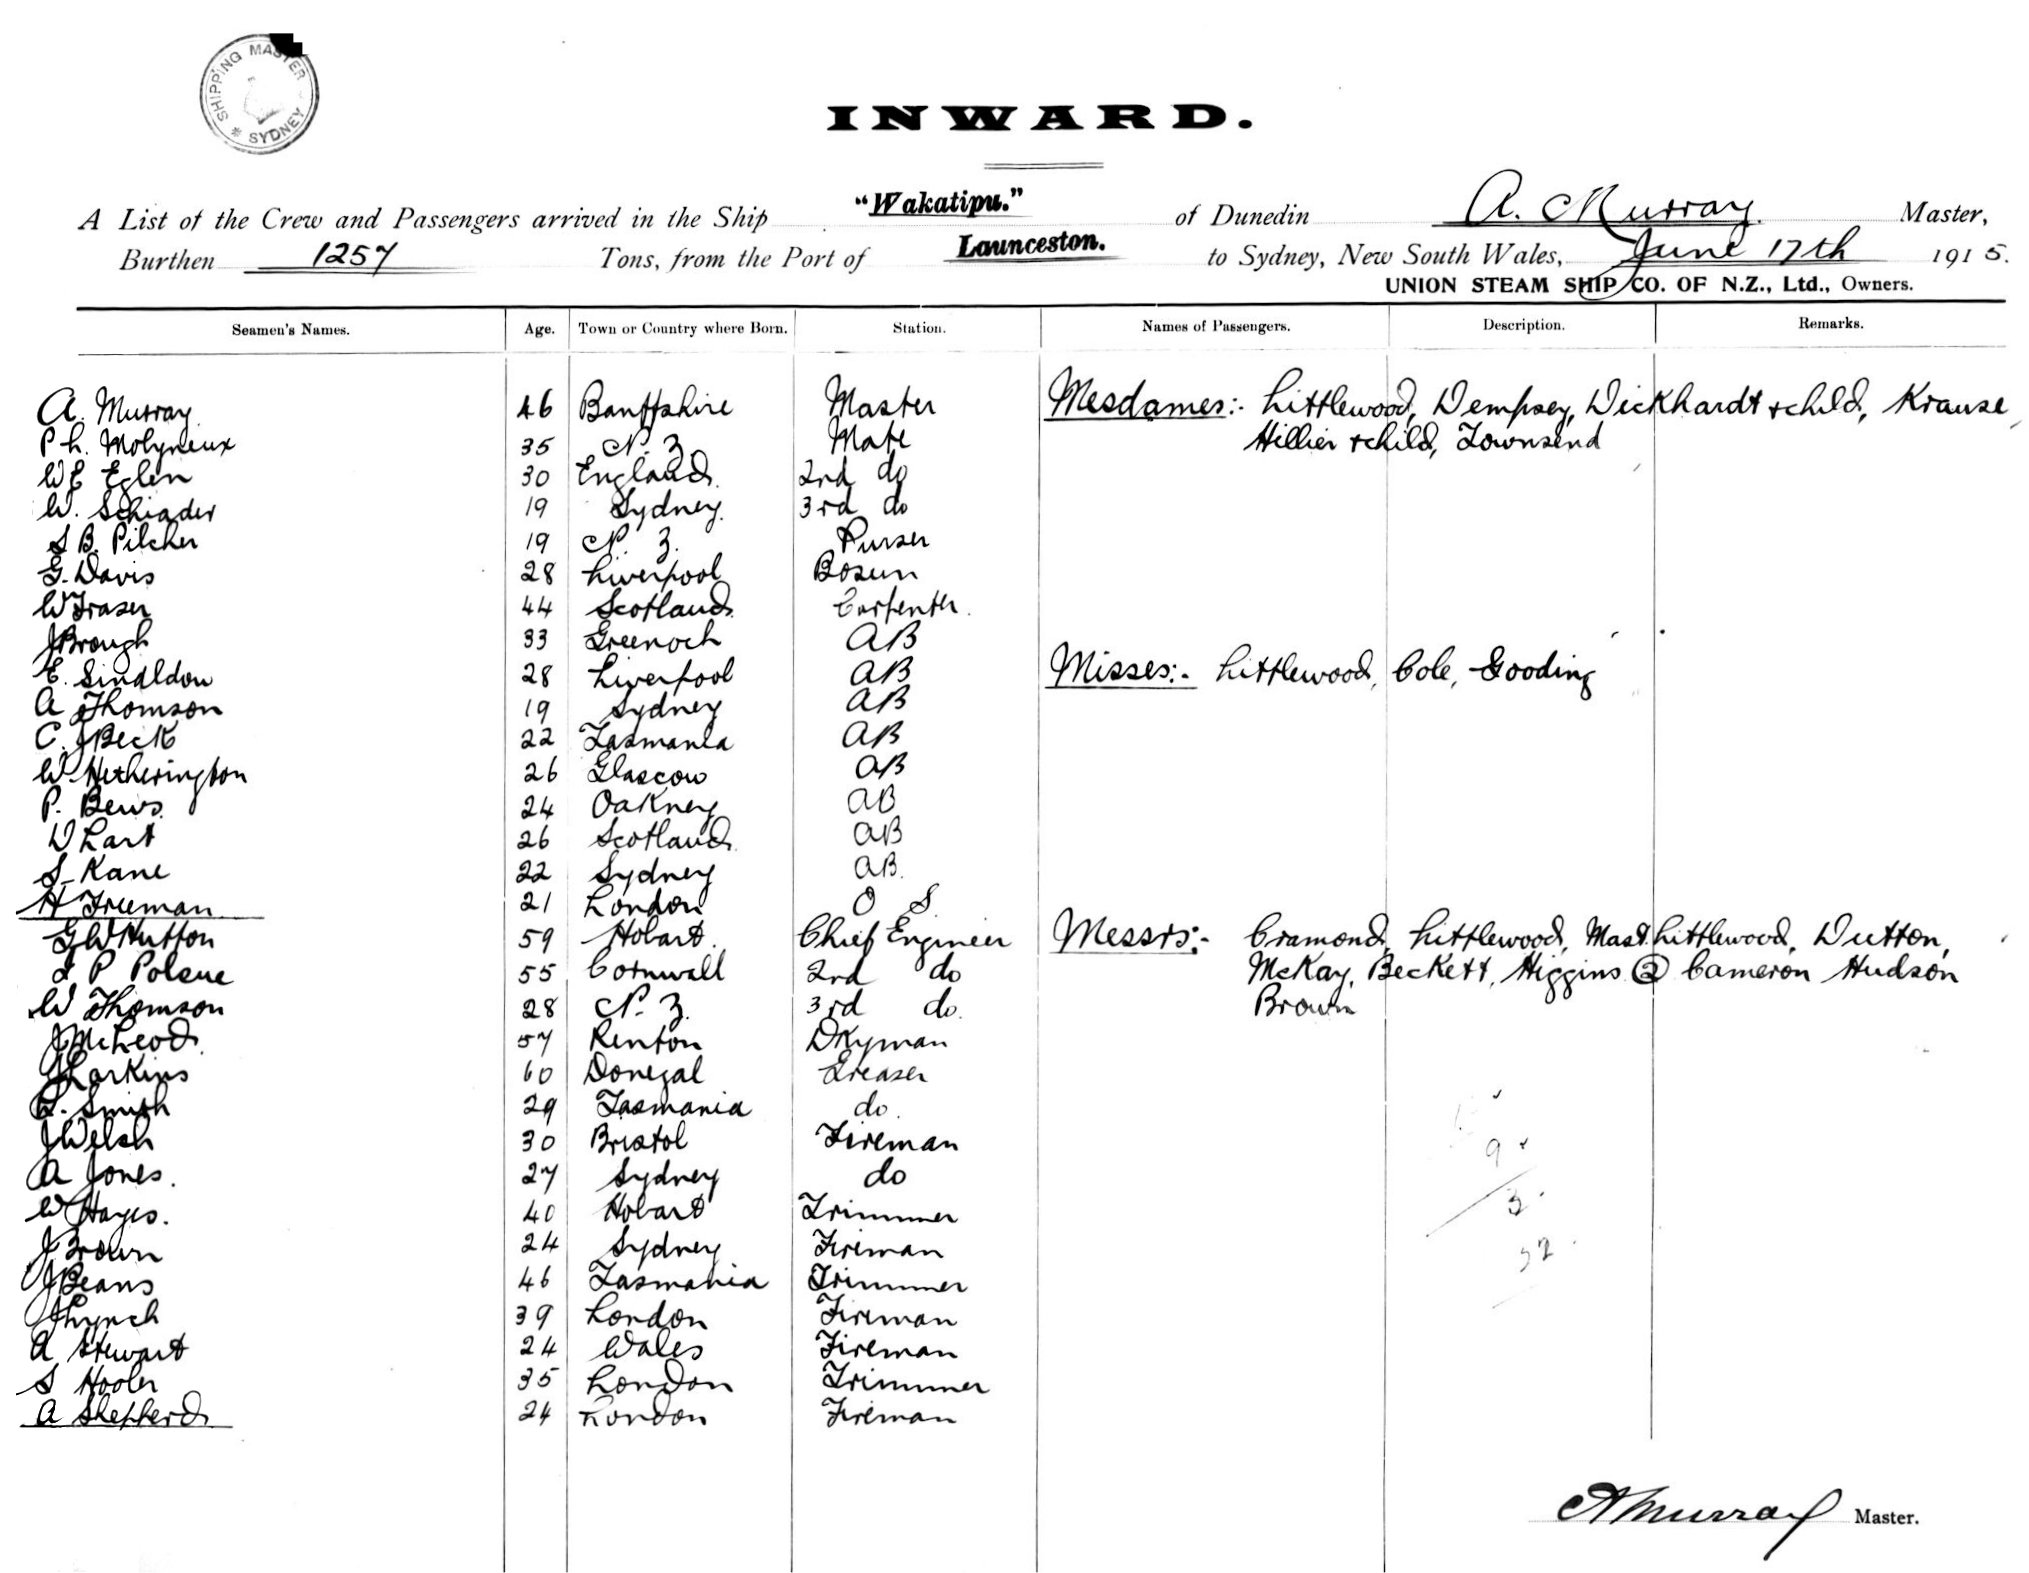 SHIPPING MASTER * SYDNEY
INWARD.
A List of the Crew and Passengers arrived in the Ship "Wakatipu." of Dunedin A. Murray Master,
Burthen 1257 Tons, from the Port of Launceston. to Sydney, New South Wales, June 17th 1915.
UNION STEAM SHIP CO. OF N.Z., Ltd., Owners.
Seamen's Names. Age. Town or Country where Born. Station. Names of Passengers. Description. Remarks.
A. Murray 46 Banffshire Master Mesdames:- Littlewood, Dempsey, Dickhardt & child, Krause,
P L. Molyneux 35 N. Z Mate Hillier & child, Townsend
W E Eglen 30 England 2nd do
W. Schrader 19 Sydney 3rd do
S B. Pilcher 19 N. Z. Purser
G. Davis 28 Liverpool Bosun
W Fraser 44 Scotland Carpenter.
J Brough 33 Greenock AB
E. Sinaldon 28 Liverpool AB Misses:- Littlewood, Cole, Gooding
A Thomson 19 Sydney AB
C. J Beck 22 Tasmania AB
W Hetherington 26 Glascow AB
P. Bews 24 Oakney AB
D Lart 26 Scotland AB
S Kane 22 Sydney AB.
H Freeman 21 London O S
G W Hutton 59 Hobart. Chief Engineer Messrs:- Cramond, Littlewood, Mast. Littlewood, Dutton,
P Polsue 55 Cornwall 2nd do McKay, Beckett, Higgins (2) Cameron Hudson
W Thomson 28 N. Z. 3rd do. Brown
J McLeod 57 Renton Dkyman
J Larkins 60 Donegal Greaser
L. Smith 29 Tasmania do.
J Welsh 30 Bristol Fireman
A Jones. 27 Sydney do
W Hayes. 40 Hobart Trimmer
J Brown 24 Sydney Fireman
J Beans 46 Tasmania Trimmer
J Lynch 39 London Fireman
A Stewart 24 Wales Fireman
S Hooler 35 London Trimmer
A Shepherd 24 London Fireman
9
3
A Murray Master.